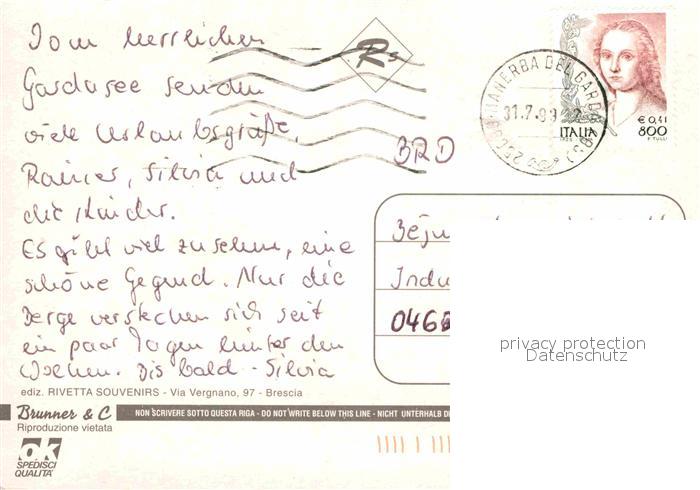 Vom herrlichen
Gardasee senden
viele Urlaubsgrüße,
Rainer, Silvia und
die Kinder.
Es gibt viel zu sehen, eine
schöne Gegend. Nur die
Berge verstecken sich seit
ein paar Tagen hinter den
Wolken. Bis bald - Silvia
Rs
MANERBA DEL GARDA
31.7.99
(BS)
€ 0,41
ITALIA 800
F. TULLI
BRD
0466
privacy protection
Datenschutz
ediz. RIVETTA SOUVENIRS - Via Vergnano, 97 - Brescia
Brunner & C
NON SCRIVERE SOTTO QUESTA RIGA - DO NOT WRITE BELOW THIS LINE - NICHT UNTERHALB
Riproduzione vietata
ok
SPEDISCI
QUALITA'